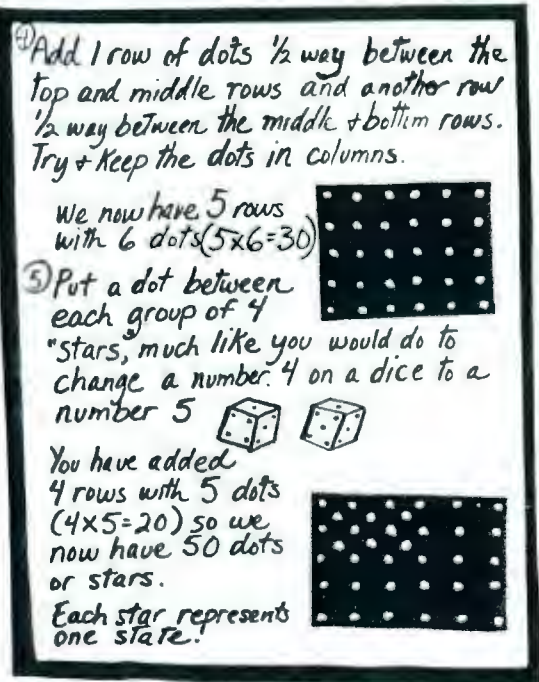 ④ Add 1 row of dots ½ way between the
top and middle rows and another row
½ way between the middle + bottim rows.
Try + Keep the dots in columns.
We now have 5 rows
with 6 dots (5x6=30)
⑤ Put a dot between
each group of 4
"stars," much like you would do to
change a number. 4 on a dice to a
number 5
You have added
4 rows with 5 dots
(4x5=20) so we
now have 50 dots
or stars.
Each star represents
one state.